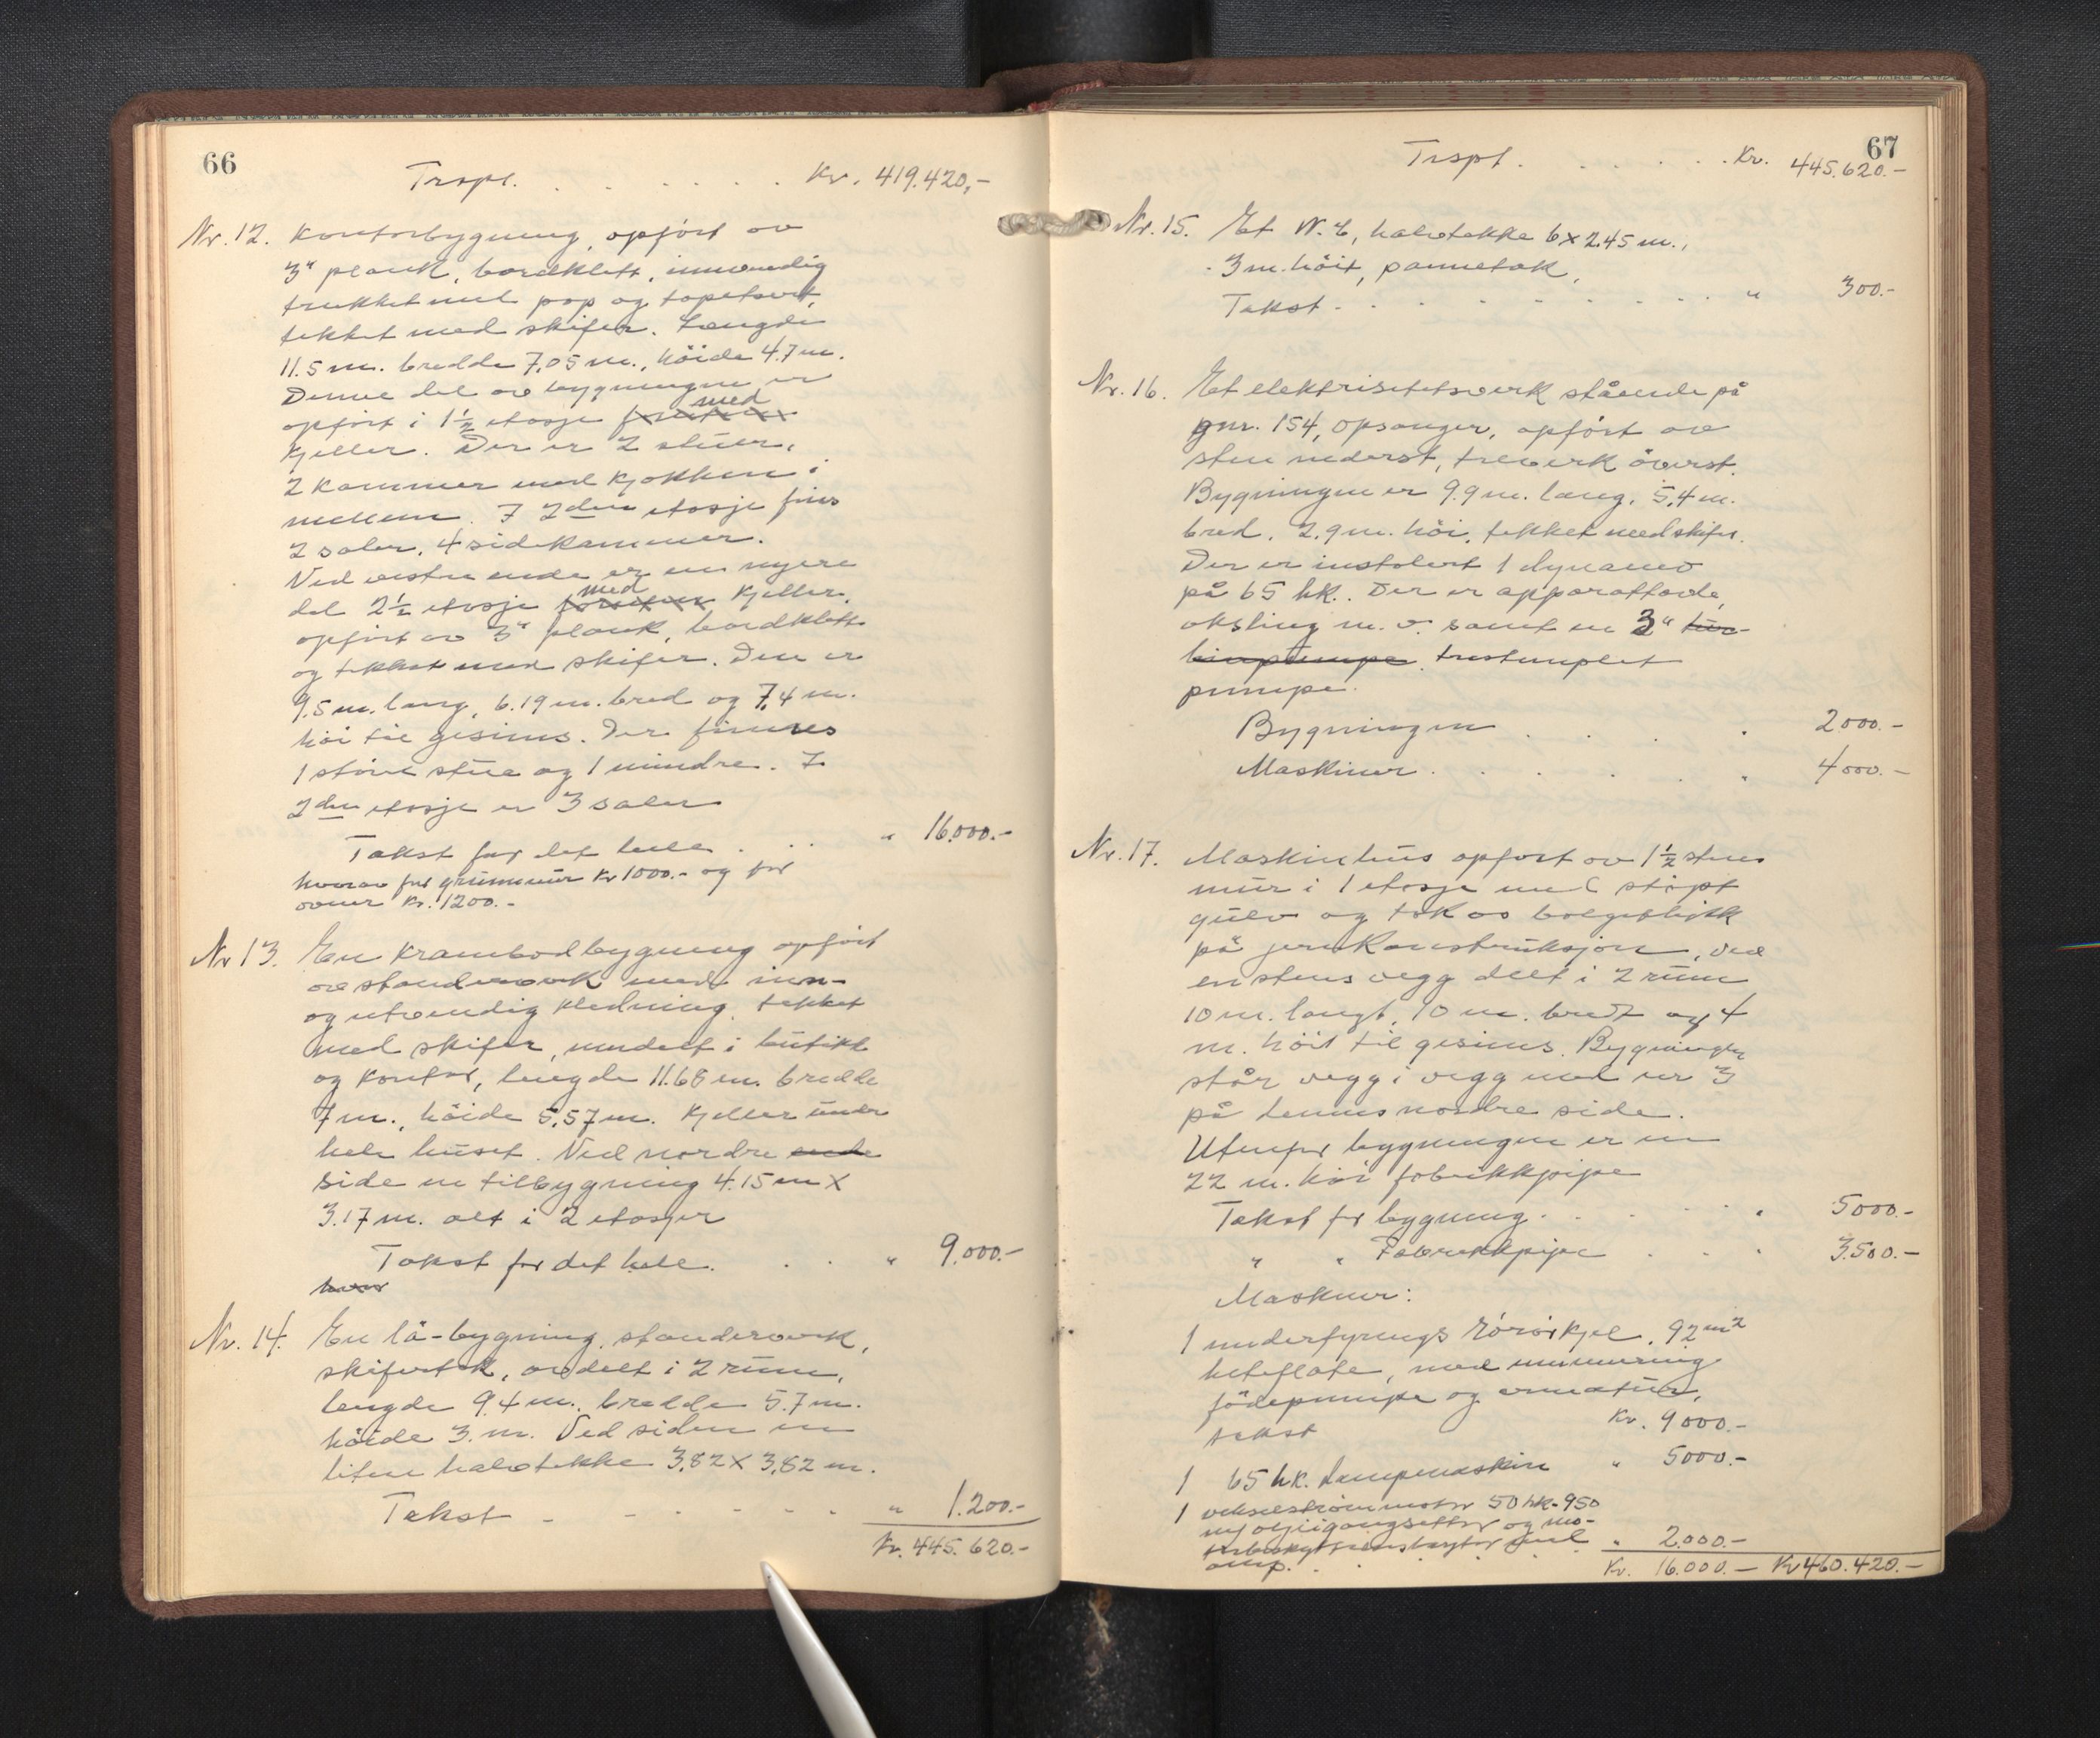 66
Trspt. . . . . . . Kr. 419.420,-
Nr. 12. Kontorbygning, opført av
3" plank, bordklett, innvendig
trukket med pap og tapetsert,
tekket med skifer. Længde
11.5 m. bredde 7,05 m., höide 4.7 m.
Denne del av bygningen er
opført i 1½ etasje foruten med
kjeller. Der er 2 stuer,
2 kammer med kjøkken i
mellem. I 2den etasje fins
2 saler, 4 sidekammer.
Ved vestre ende er en nyere
del 2½ etasje foruten med kjeller,
opført av 3" plank, bordklett
og tekket med skifer. Den er
9.5 m. lang, 6.19 m. bred og 7,4 m.
höi til gesims. Der finnes
1 större stue og 1 mindre. I
2den etasje er 3 saler
Takst for det hele . . . " 16.000.-
hvorav for grunnmur Kr 1000.- og for
ovner Kr. 1200.-
Nr 13. En krambodbygning opført
av standerverk med inn-
og utvendig kledning, tekket
med skifer, inndelt i butikk
og kontor, lengde 11.68 m. bredde
7 m., höide 5,57 m. Kjeller under
hele huset. Ved nordre ende
side en tilbygning 4.15 m X
3.17 m. alt i 2 etasjer
Takst for det hele. . . " 9.000.-
hvor
Nr. 14. En lå-bygning, standerverk,
skifertak, avdelt i 2 rum,
lengde 9.4 m., bredde 5.7 m.
höide 3. m. Ved siden en
liten halvtekke 3,82 X 3,82 m.
Takst - - - - - " 1.200.-
Kr. 445.620.-
67
Trspt. . . . . . Kr. 445.620.-
Nr. 15. Et W.C, halvtekke 6 x 2.45 m.,
3 m. höit, pannetak,
Takst - - - - - - - " 300.-
Nr. 16. Et elektrisitetsverk stående på
gnr. 154, Opsanger, opført av
sten nederst, treverk överst.
Bygningen er 9.9 m. lang, 5,4 m.
bred, 2.9 m. höi, tekket med skifer.
Der er instalert 1 dynamo
på 65 hk. Der er apparattavle,
aksling m. v. samt en 3" tur-
binpumpe. trestemplet
pumpe.
Bygningen . . . . 2000.-
Maskiner . . . . . 4000.-
Nr. 17. Maskinhus opført av 1½ stens
mur i 1 etasje med støpt
gulv og tak av bølgeblikk
på jernkonstruksjon, ved
en stens vegg delt i 2 rum
10 m. langt, 10 m. bredt og 4
m. höit til gesims. Bygningen
står vegg i vegg med nr 3
på dennes nordre side.
Utenfor bygningen er en
22 m. höi fabrikkpipe
Takst for bygning . . . . . 5000.-
" " Fabrikkpipe . . . 3.500.-
Maskiner:
1 underfyrings rörkjel, 92 m2
heteflate, med innmuring
födepumpe og armatur,
takst Kr. 9000.-
1 65 hk. dampmaskin " 5000.-
1 vekselströmmotor 50 hk-950
m/ oljeigangsetter og mo-
torbeskyttelsesbryter med
amp. . . . " 2.000.-
Kr. 16.000.- Kr 460.420.-